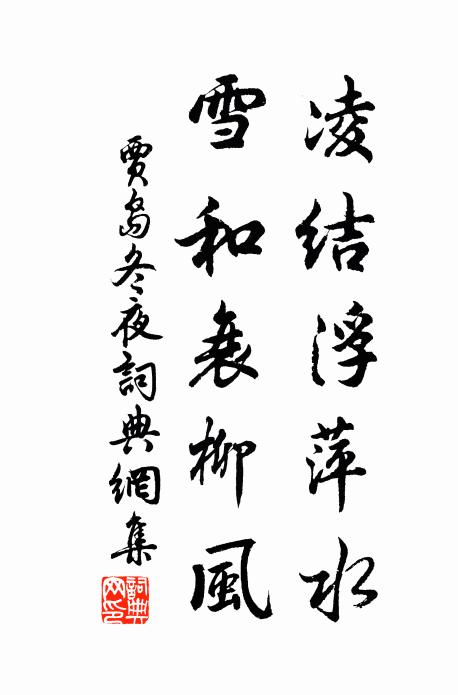 凌結浮萍水
雪和衰柳風
賈島冬夜詞典網集
詞典
网印